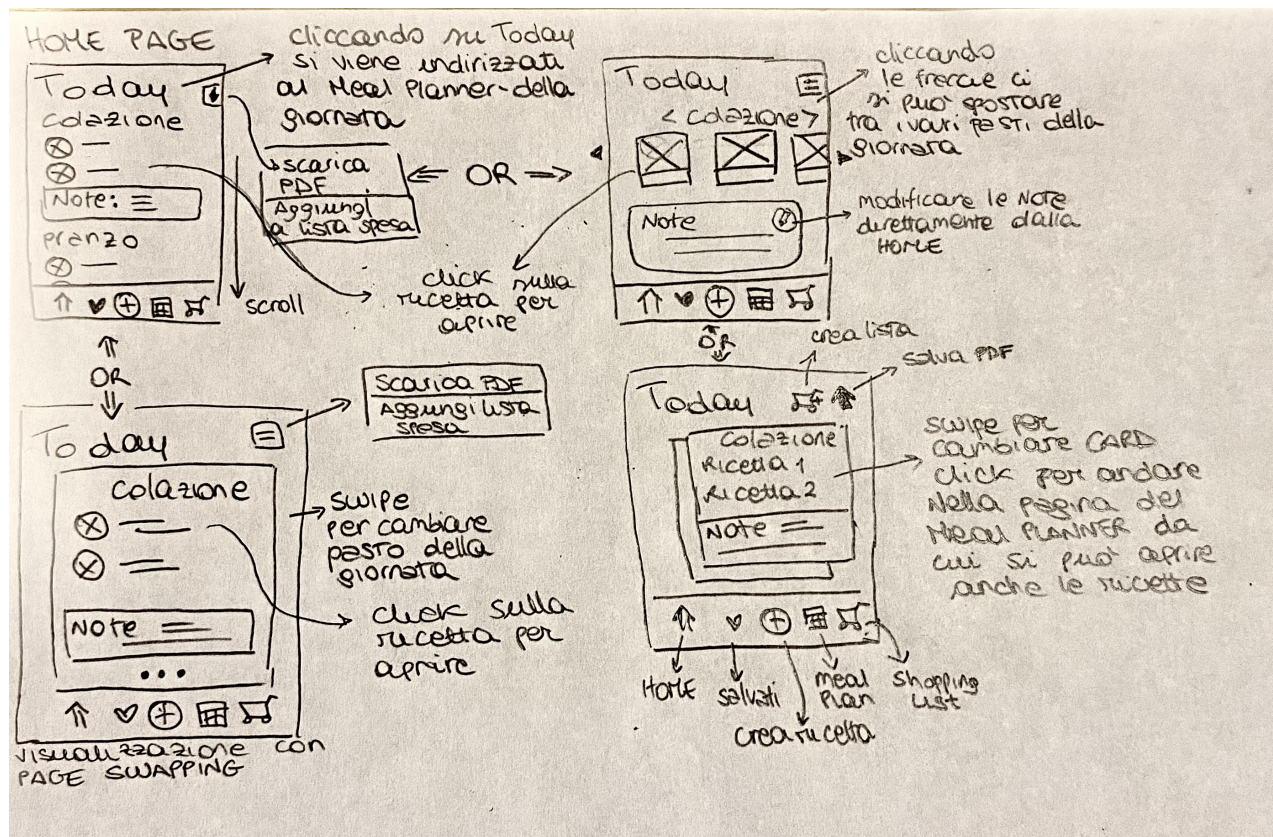 HOME PAGE
Today
colazione
Note:
pranzo
cliccando su Today
si viene indirizzati
al Meal Planner della
giornata
scarica
PDF
Aggiungi
a lista spesa
OR
scroll
click sulla
ricetta per
aprire
Today
< colazione >
Note
cliccando
le frecce ci
si può spostare
tra i vari pasti della
giornata
modificare le Note
direttamente dalla
HOME
OR
OR
Today
colazione
NOTE
Scarica PDF
Aggiungi lista
spesa
swipe
per cambiare
pasto della
giornata
click sulla
ricetta per
aprire
visualizzazione con
PAGE SWAPPING
crea lista
salva PDF
Today
colazione
Ricetta 1
Ricetta 2
NOTE
swipe per
cambiare CARD
click per andare
nella pagina del
Meal PLANNER da
cui si può aprire
anche le ricette
HOME
salvati
crea ricetta
meal
plan
shopping
list